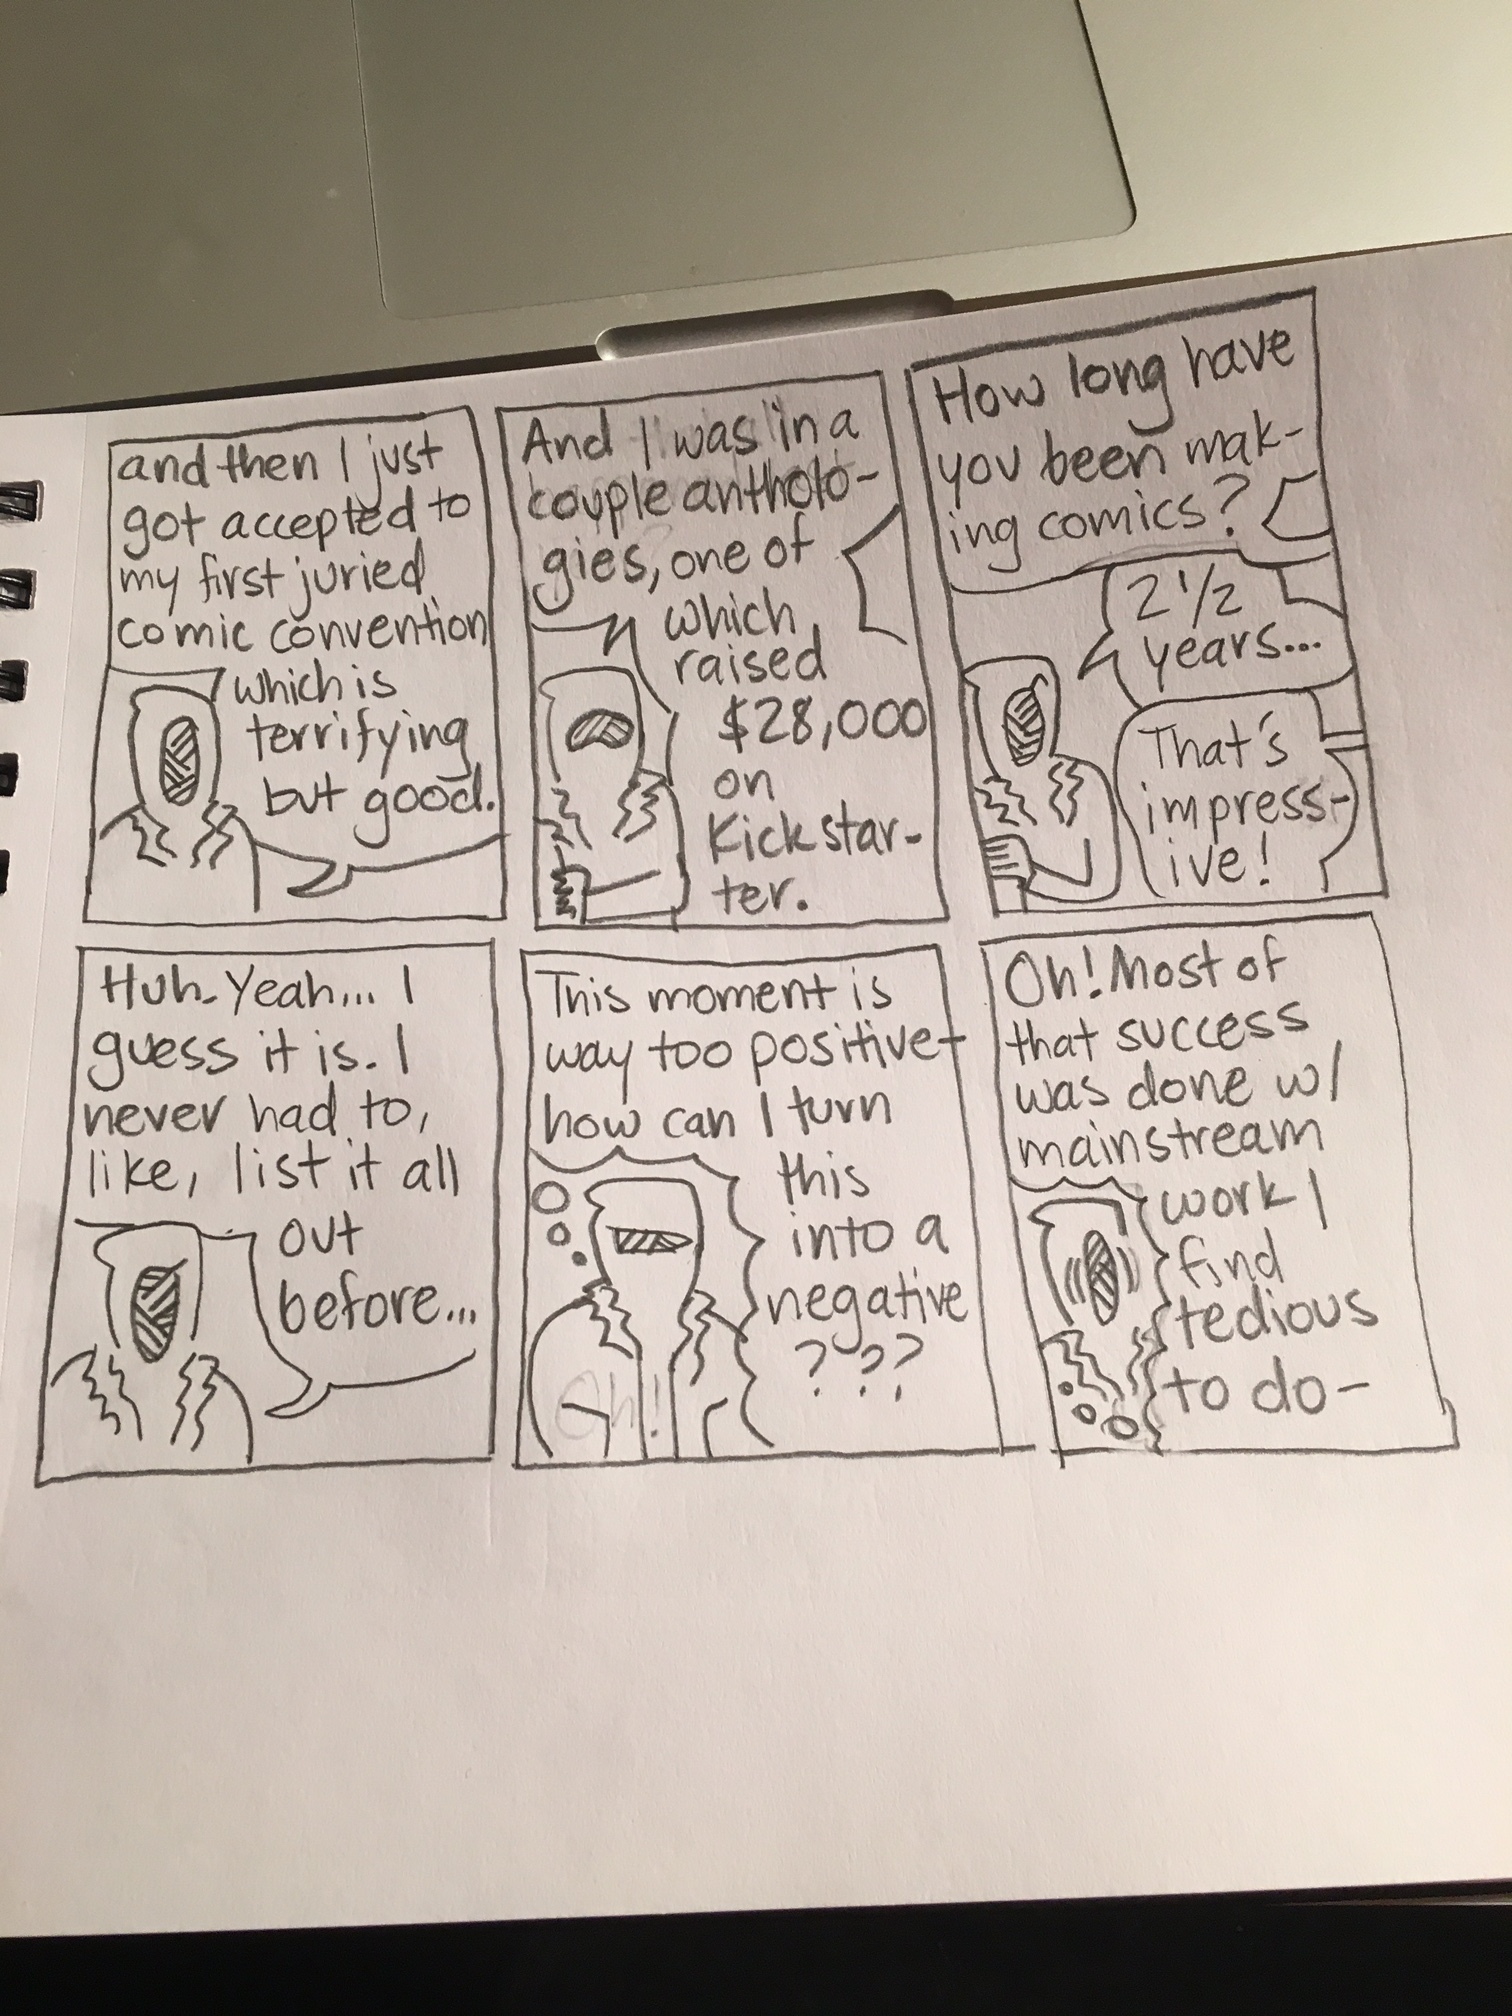 and then I just
got accepted to
my first juried
comic convention
which is
terrifying
but good.
And I was in a
couple antholo-
gies, one of
which
raised
$28,000
on
Kickstar-
ter.
How long have
you been mak-
ing comics?
2 1/2
years...
That's
impress-
ive!
Huh. Yeah... I
guess it is. I
never had to,
like, list it all
out
before...
This moment is
way too positive-
how can I turn
this
into a
negative
???
Oh!
Oh! Most of
that success
was done w/
mainstream
work I
find
tedious
to do-